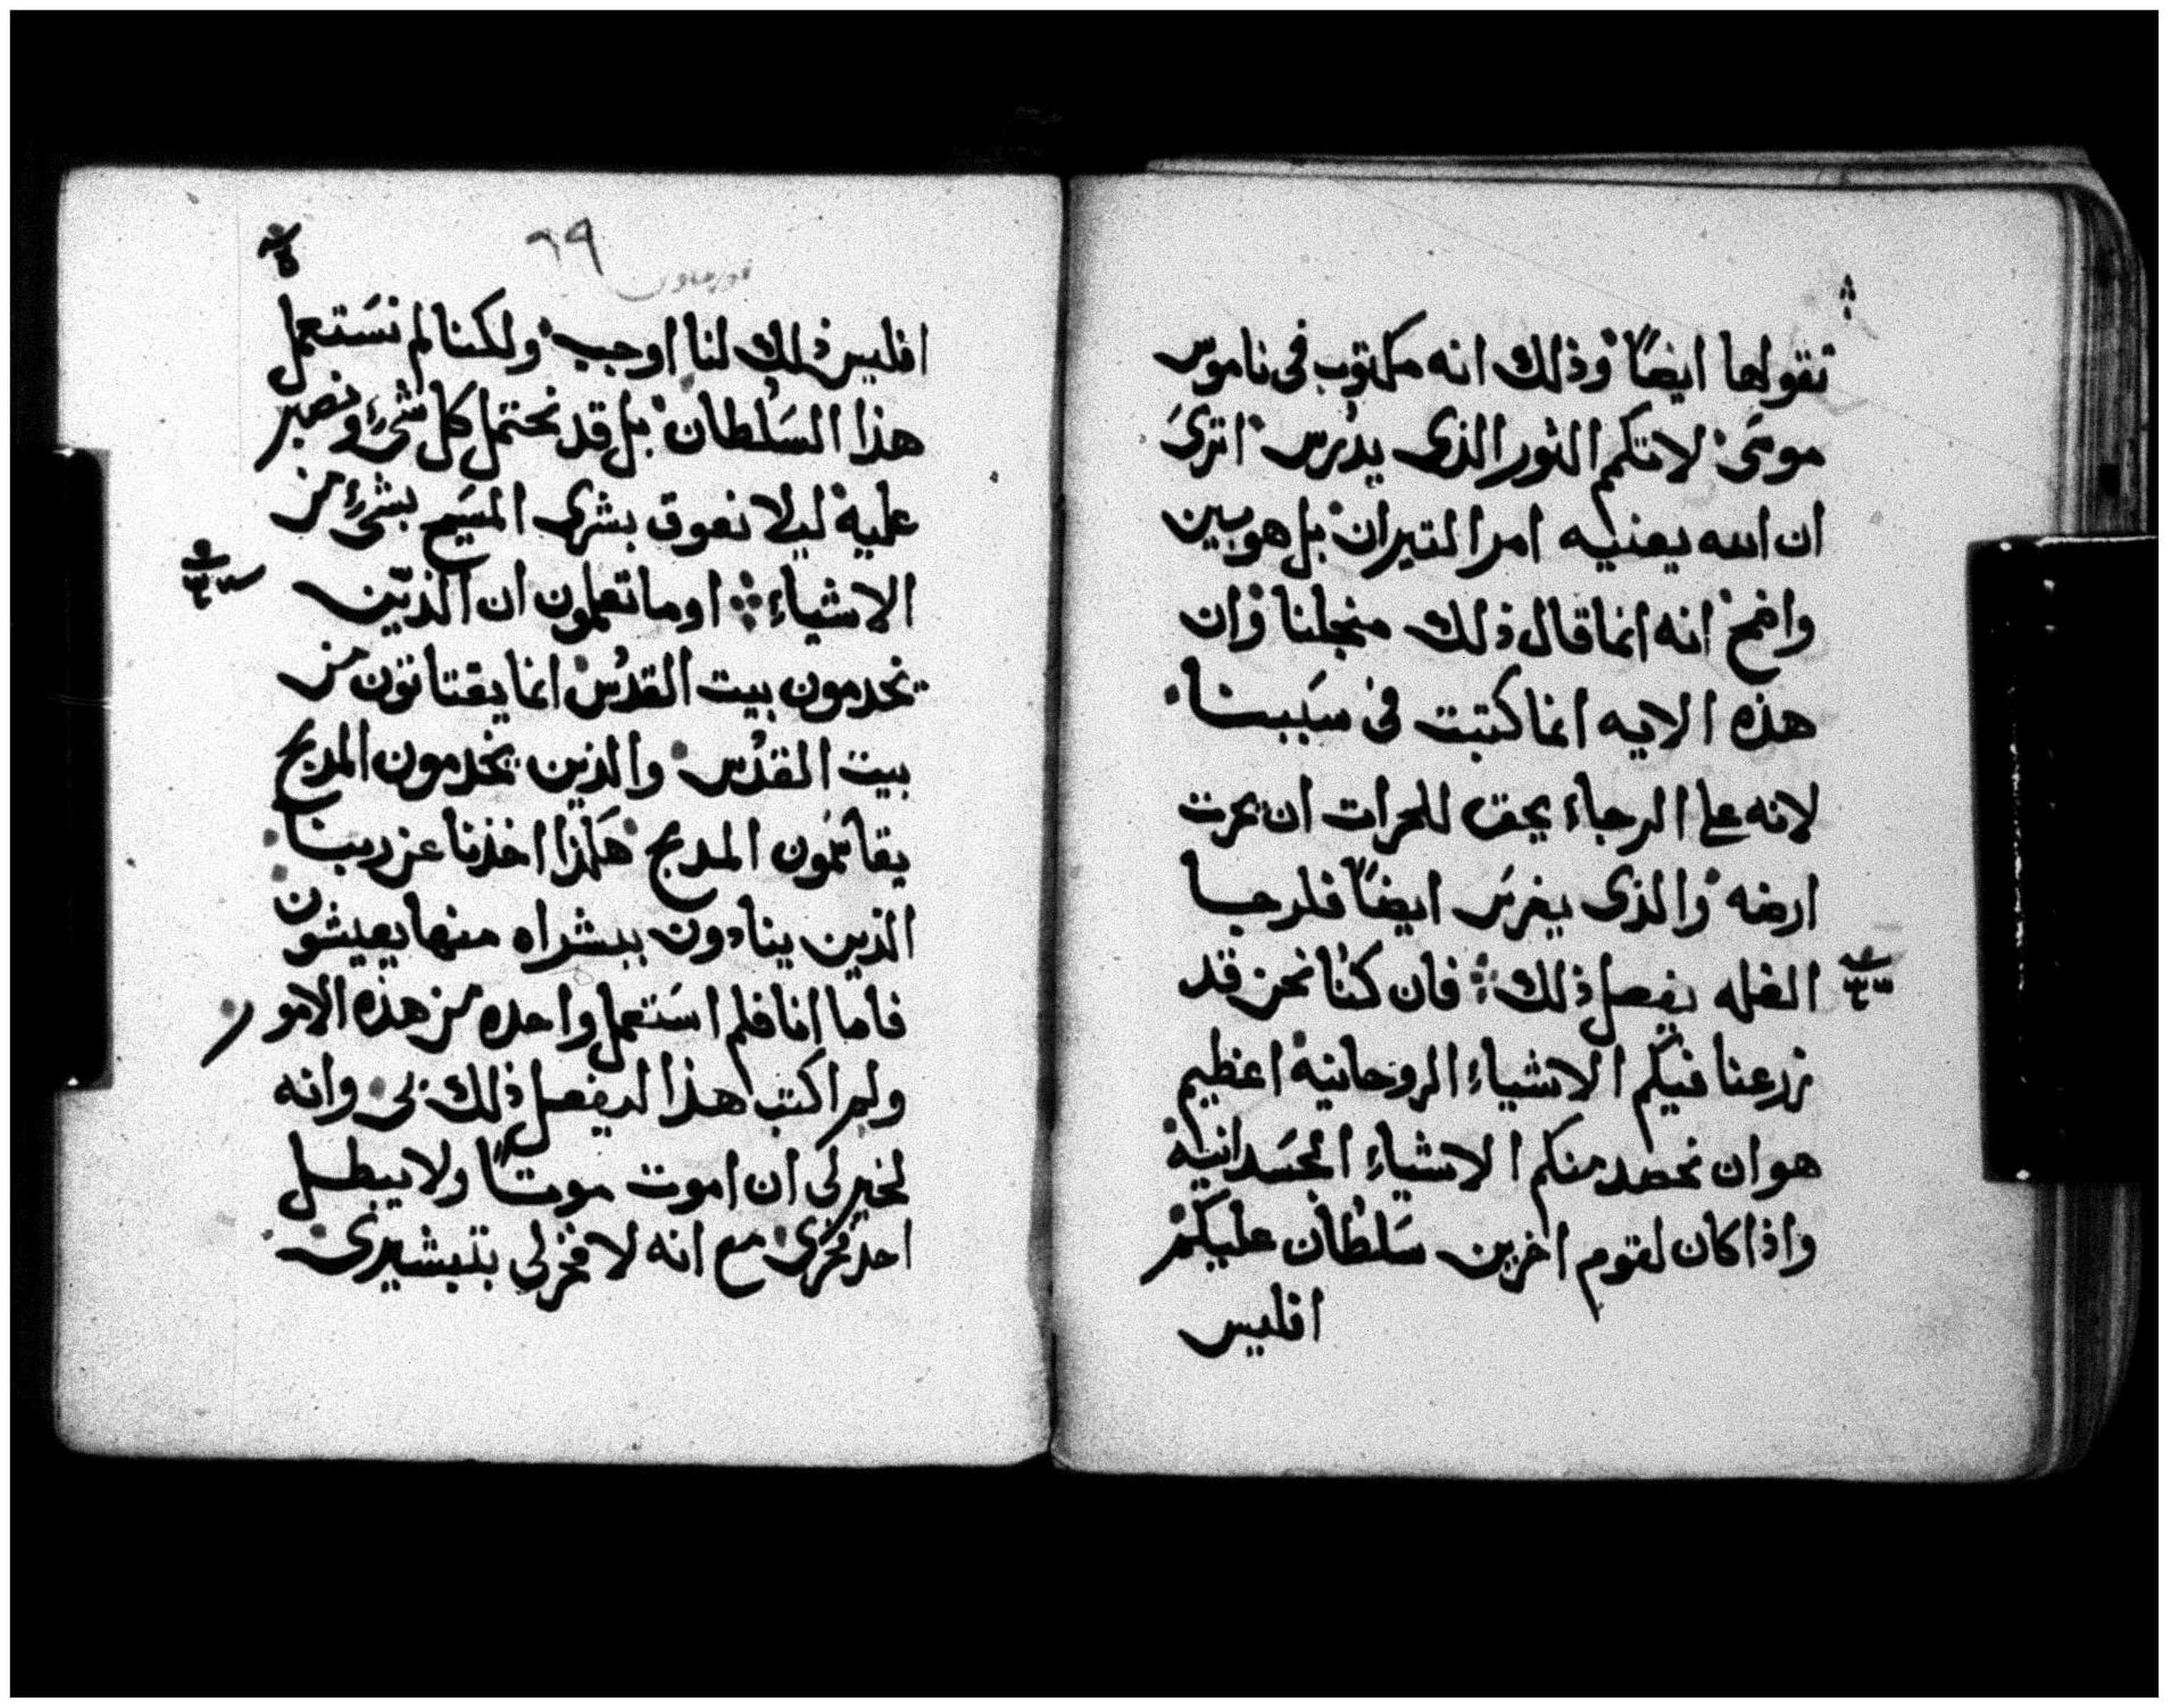 تقولها ايضًا وذلك انه مكتوب فى ناموس
موسَى لاتكم الثور الذى يدرس اترىَ
ان الله يعنيه امر التيران بل هو بين
واضح انه انما قال ذلك منجلنا وان
هذه الايه انما كتبت فى سَببنا
لانه على الرجاء يحق للحرات ان يحرت
ارضه والذى يغرسَ ايضًا فلرجا
الغله يفعل ذلك فان كنا نحن قد
زرعنا فيكم الاشياء الروحانية اعظيم
هو ان نحصد منكم الاشياء الجسَدانية
واذا كان لقوم اخرين سَلطان عليكم
افليس
٦٩
افليس ذلك لنا اوجب ولكنا لم نسَتعمل
هذا السَلطان بل قد نحتمل كل شىء ونصبر
عليه ليلا نعوق بشرى المسَيح بشىء من
الاشياء اوما تعلمون ان الذين
يخدمون بيت القدُس انما يقتاتون من
بيت القدُس والذين يخدمون المدبح
يقاسَمون المدبح هكذا اخذنا عن ربنا
الذين ينادون ببشراه منها يعيشون
فاما انا فلم اسَتعمل واحده من هذه الامو
ر
ولم اكتب هذا ليفعل ذلك بى وانه
لخير لى ان اموت موتًا ولا يبطل
احد فخرى مع انه لا فخر لى بتبشيرى